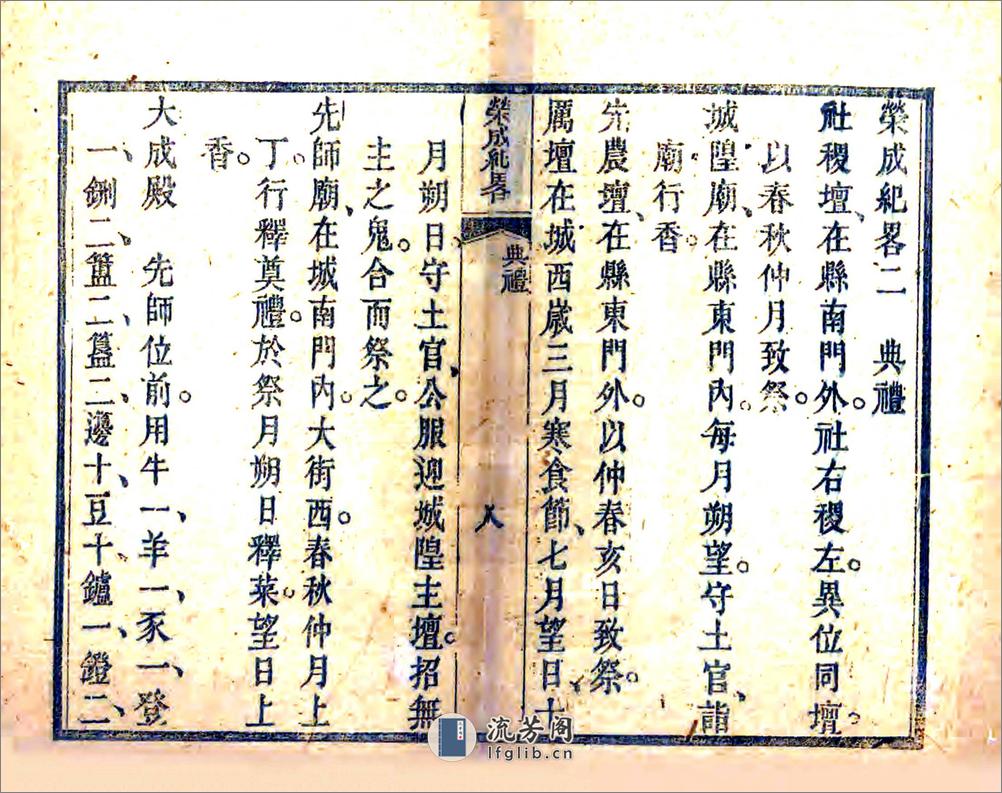 榮成紀畧二　典禮
社稷壇、在縣南門外。社右稷左。異位同壇。
以春秋仲月致祭。
城隍廟、在縣東門內。每月朔望。守土官、詣
廟行香。
先農壇、在縣東門外。以仲春亥日致祭。
厲壇在城西歲三月寒食節、七月望日、十
榮成紀畧
典禮
八
月朔日、守土官、公服迎城隍主壇。招無
主之鬼。合而祭之。
先師廟、在城南門內。大街西。春秋仲月上
丁。行釋奠禮。於祭月朔日釋菜。望日上
香。
大成殿　先師位前。用牛一、羊一、豕一、登
一、鉶二、簠二、簋二、籩十、豆十、鑪一、鐙二、
流芳阁
lfglib.cn